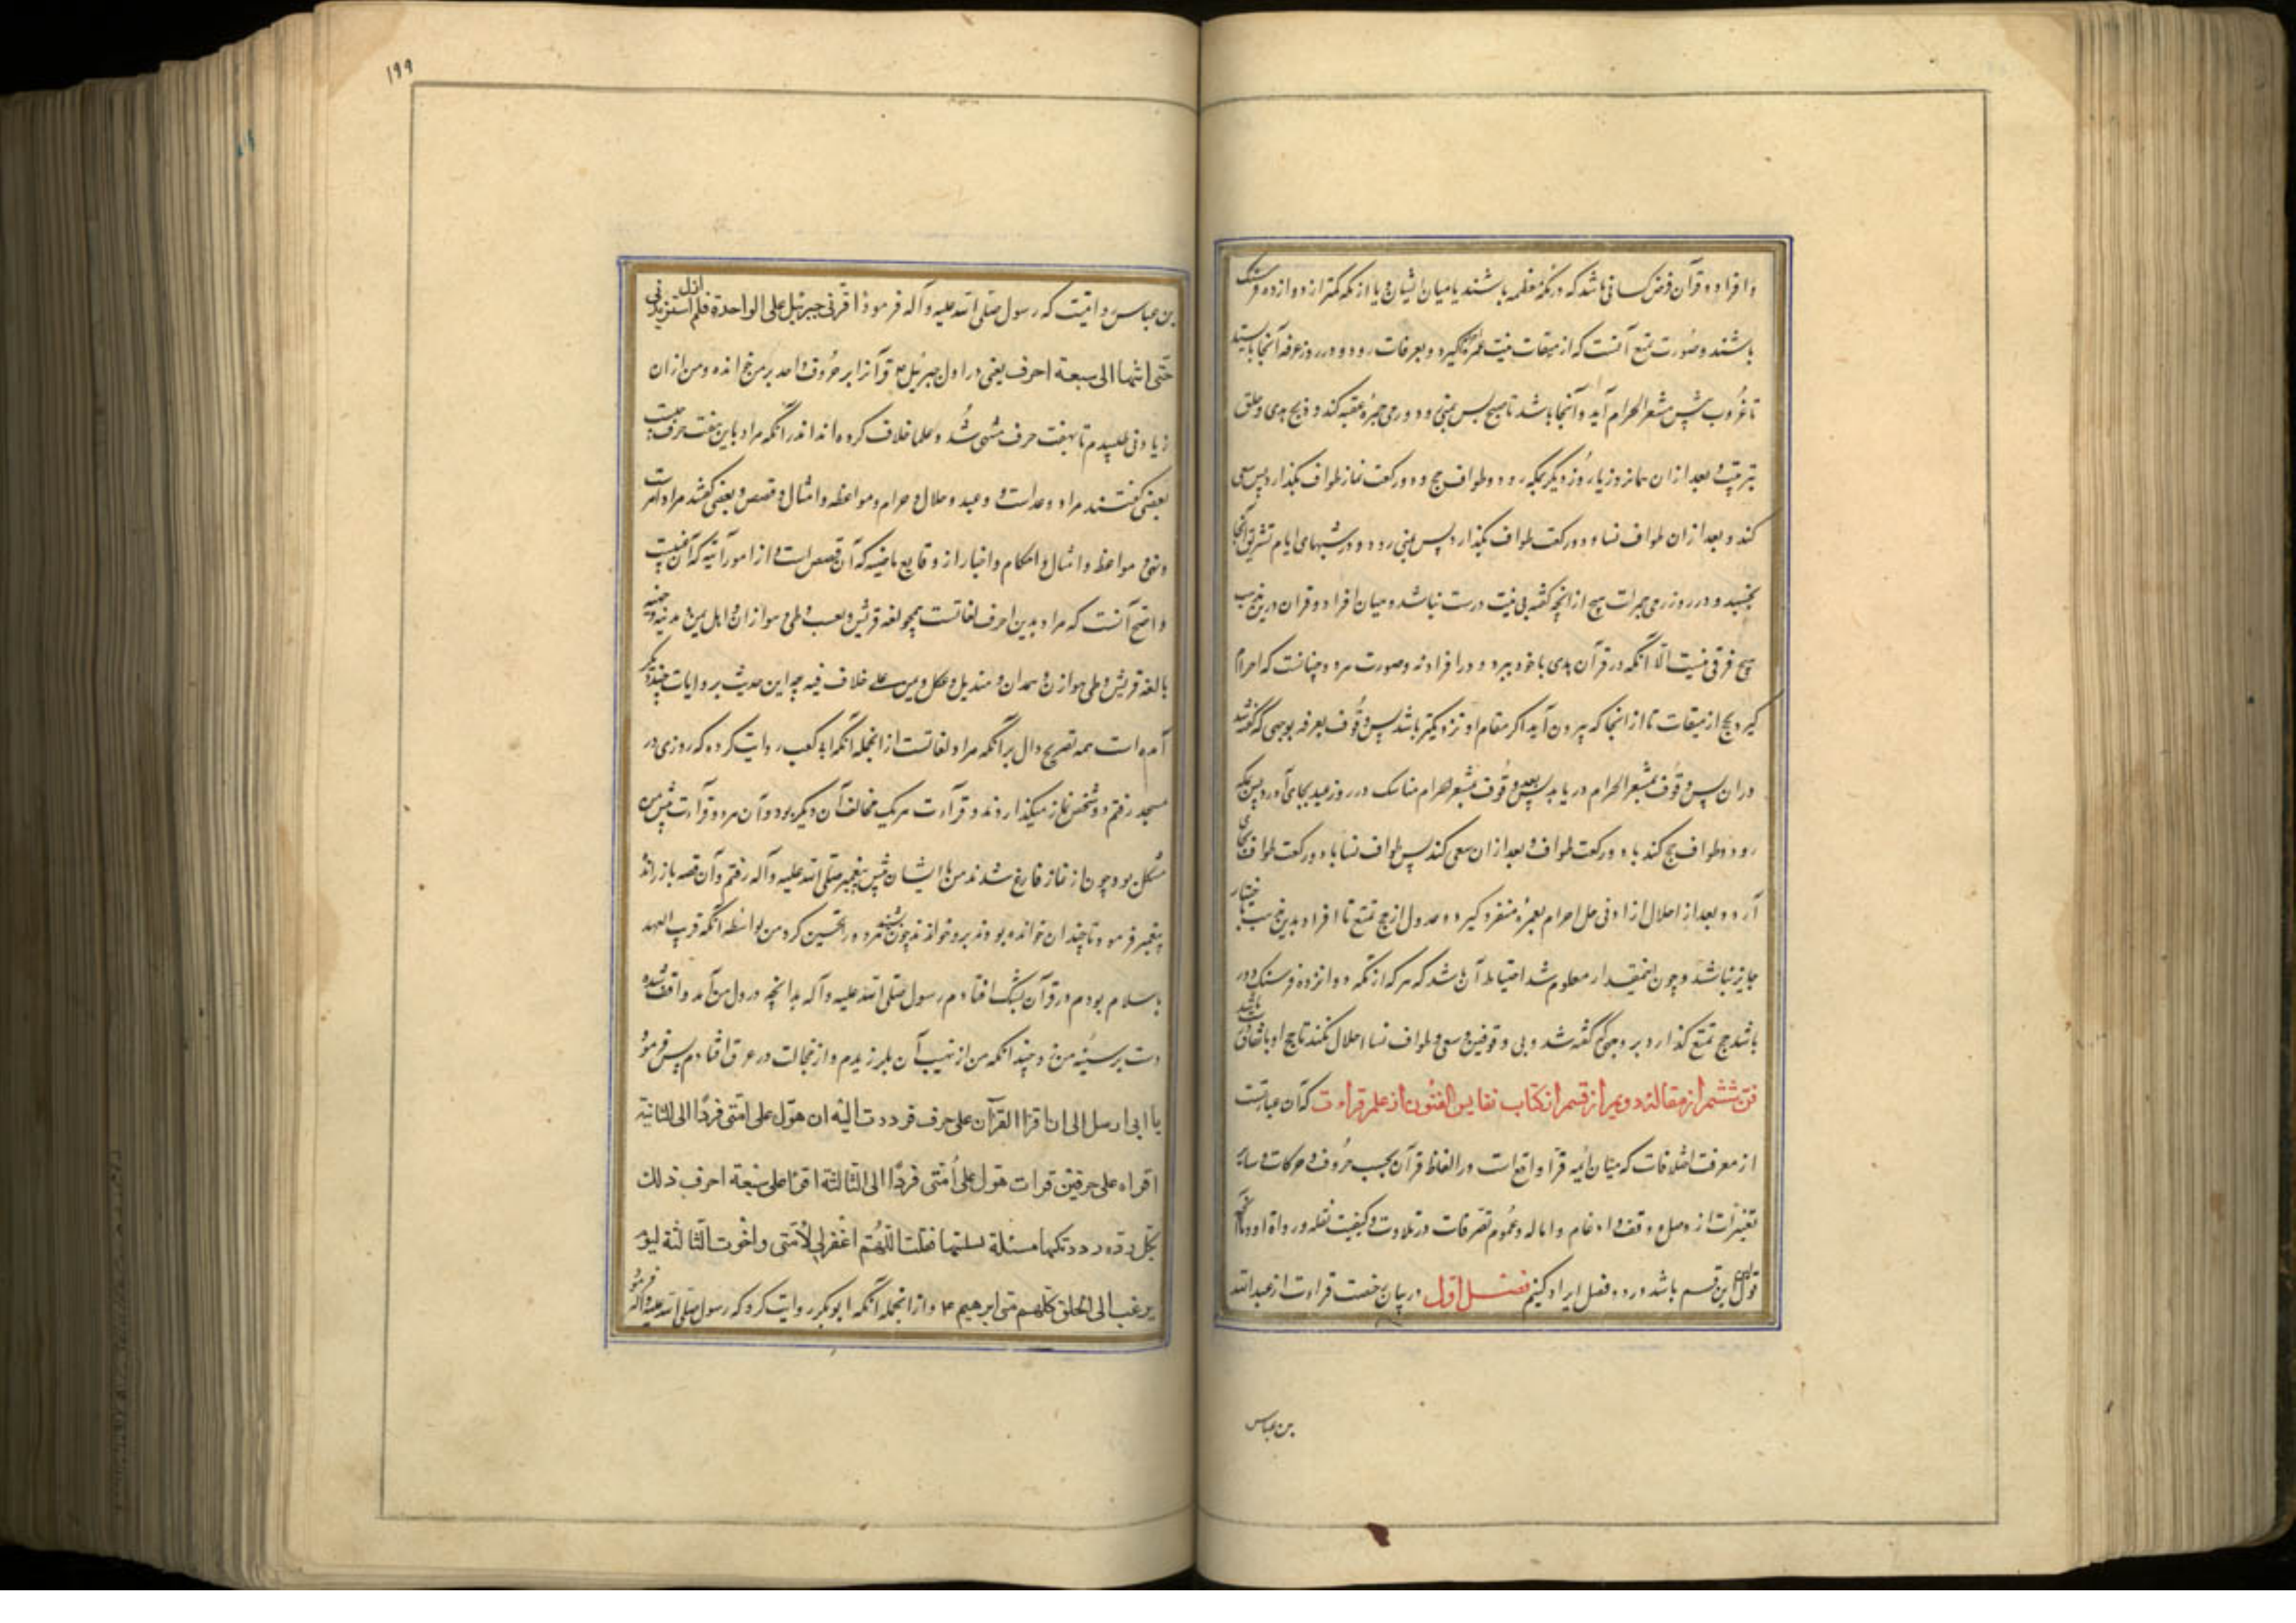 و افراد و قرآن فرض کسانی باشد که در مکه معظمه باشند یا میان ایشان و یا از مکه کمتر از دوازده فرسنک
باشند و صورت تمتع آنست که از میقات نیت عمره گیرد و بعرفات رود و در روز عرفه آنجا بایستد
تا غروب پس بمشعر الحرام آید و آنجا باشد تا صبح پس بمنی رود و رمی جمره عقبه کند و ذبح هدی و حلق
بترتیب و بعد از ان همانروز یا روز دیگر بمکه رود و طواف حج و دو رکعت نماز طواف بگذارد پس سعی
کند و بعد از ان طواف نسا و دو رکعت طواف بگذارد پس بمنی رود و در شبهای ایام تشریق آنجا
بخسپد و در روز رمی جمرات هیچ از انچه گفته بی نیت درست نباشد و میان افراد و قران درین مذهب
هیچ فرقی نیست الا انکه در قرآن هدی با خود ببرد و در افراد نه و صورت هر دو چنانست که احرام
گیرد بحج از میقات تا از انجا که بیرون آید اگر مقام او نزدیکتر باشد پس وقوف بعرفه بوجهی که گفته شد
دران پس وقوف بمشعر الحرام در یابد پس بعد وقوف بمشعر حرام مناسک در روز عید بجای آورد پس بمکه
رود و طواف حج کند با دو رکعت طواف و بعد از ان سعی کند پس طواف نسا با دو رکعت طواف بجای
آرد و بعد از احلال از ادنی حل احرام بعمره منفرد گیرد و عدول از حج تمتع تا افراد بدین مذهب باختیار
جایز نباشد و چون اینمقدار معلوم شد احتیاط آن باشد که هر که از مکه دوانزده فرسنک دور
باشد حج تمتع گذارد بر وجهی که گفته شد و بی وقوفین و سعی و طواف نسا احلال نکند تا حج او باتفاق باشد
فن ششم از مقالهٔ دویم از قسم از کتاب نفایس الفنون از علم قراءت که آن عبارتست
از معرفت اختلافات که میان ائمه قرا واقع است در الفاظ قرآن بحسب حروف و حرکات و سایر
تغییرات از وصل و وقف و ادغام و اماله و عموم تصرفات در تلاوت و کیفیت نقله و رواة او و ما آنچه
قول این قسم باشد در دو فصل ایراد کنیم فصل اول در بیان رخصت قراءت از عبد الله
بن عباس
۱۹۹
بن عباس روایتیست که رسول صلی الله علیه و آله فرمود اقرئنی جبرئیل علی الواحدة فلم ازل استزیدنی
حتی انتها الی سبعة احرف یعنی در اول جبرئیل ع قرآنرا بر حروف واحد بر من خوانده و من از ان
زیادتی طلبیدم تا بهفت حرف منتهی شد و علما خلاف کرده اند اندر انکه مراد باین هفت حرف چیست
بعضی گفتند مراد وعداست و وعید و حلال و حرام و مواعظ و امثال و قصص و بعضی گفتند مراد امرست
و نهی و مواعظ و امثال و احکام و اخبار از وقایع ماضیه که آن قصص است و از امور آتیه که آن غیبست
و اصح آنست که مراد بدین احرف لغاتست همچو لغه قریش و بعب طی و هوازان و اهل یمن و مدینه و
با لغه قریش و طی هوازن و همدان و هندیل و عکل و یمن علی خلاف فیه چه این حدیث بروایات چند دیگر
آمده است همه تصریح دال بر آنکه مراد لغاتست از انجمله انکه ابی کعب روایت کرده که روزی در
مسجد رفتم و دو شخص نماز میگذاردند و قرآءت هر یک مخالف آن دیگر بود و آن هر دو قرآءت پیش من
مشکل بود چون از نماز فارغ شدند من با ایشان پیش پیغمبر صلی الله علیه و آله رفتم و آن قصه باز راند
پیغمبر فرمود تا چندان خوانده بودند برو خواندند چون بشنید هر دو را تحسین کرد من بواسطه انکه قریب العهد
باسلام بودم در قرآن بشک افتادم رسول صلی الله علیه و آله بدانچه در دل من آمد واقف شده
دست بر سینه من زد چندانکه من از نهیب آن بلرزیدم و از خجالت در عرق افتادم پس فرمود
یا ابی ارسل الی ان اقرا القرآن علی حرف فرددت الیه ان هوّل علی امتی فردّا الی الثانیة
اقراه علی حرفین قرات هول علی أمتی فردّا الی الثالثة اقرا علی سبعة احرف ذلک
بکل ردة رددتکها مسئلة سلتها فقلت اللهم اغفر لی لامتی واخرت الثالثة لیوم
یرغب الی الخلق کلهم متی ابرهیم ع و از انجمله انکه ابو بکر روایت کرد که رسول صلی الله علیه و اله فرمود